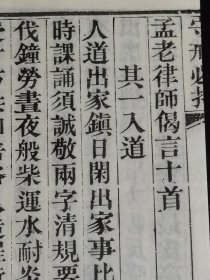 孟老律師偈言十首
其一入道
人道出家鎮日閑出家事比
時課誦須誠敬兩字清規要
伐鐘勞晝夜般柴運水耐